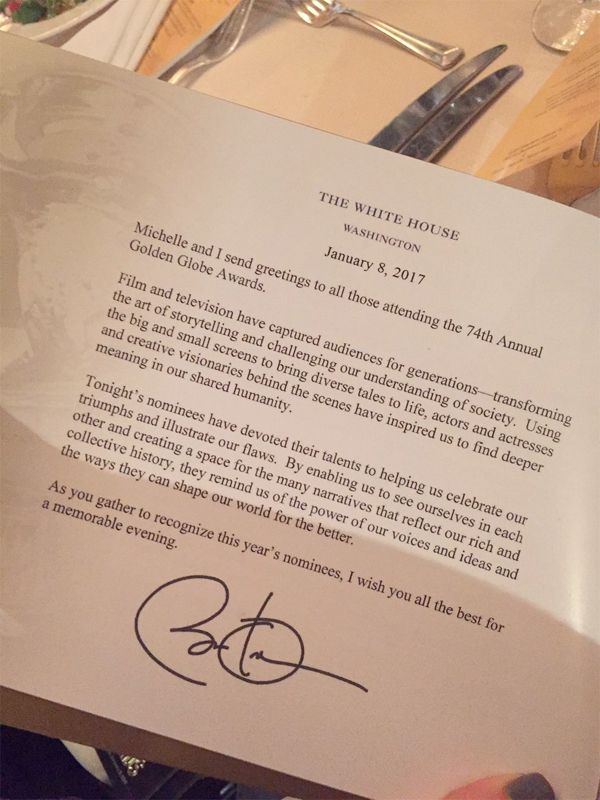 THE WHITE HOUSE
WASHINGTON
January 8, 2017
Michelle and I send greetings to all those attending the 74th Annual
Golden Globe Awards.
Film and television have captured audiences for generations—transforming
the art of storytelling and challenging our understanding of society.  Using
the big and small screens to bring diverse tales to life, actors and actresses
and creative visionaries behind the scenes have inspired us to find deeper
meaning in our shared humanity.
Tonight's nominees have devoted their talents to helping us celebrate our
triumphs and illustrate our flaws.  By enabling us to see ourselves in each
other and creating a space for the many narratives that reflect our rich and
collective history, they remind us of the power of our voices and ideas and
the ways they can shape our world for the better.
As you gather to recognize this year's nominees, I wish you all the best for
a memorable evening.